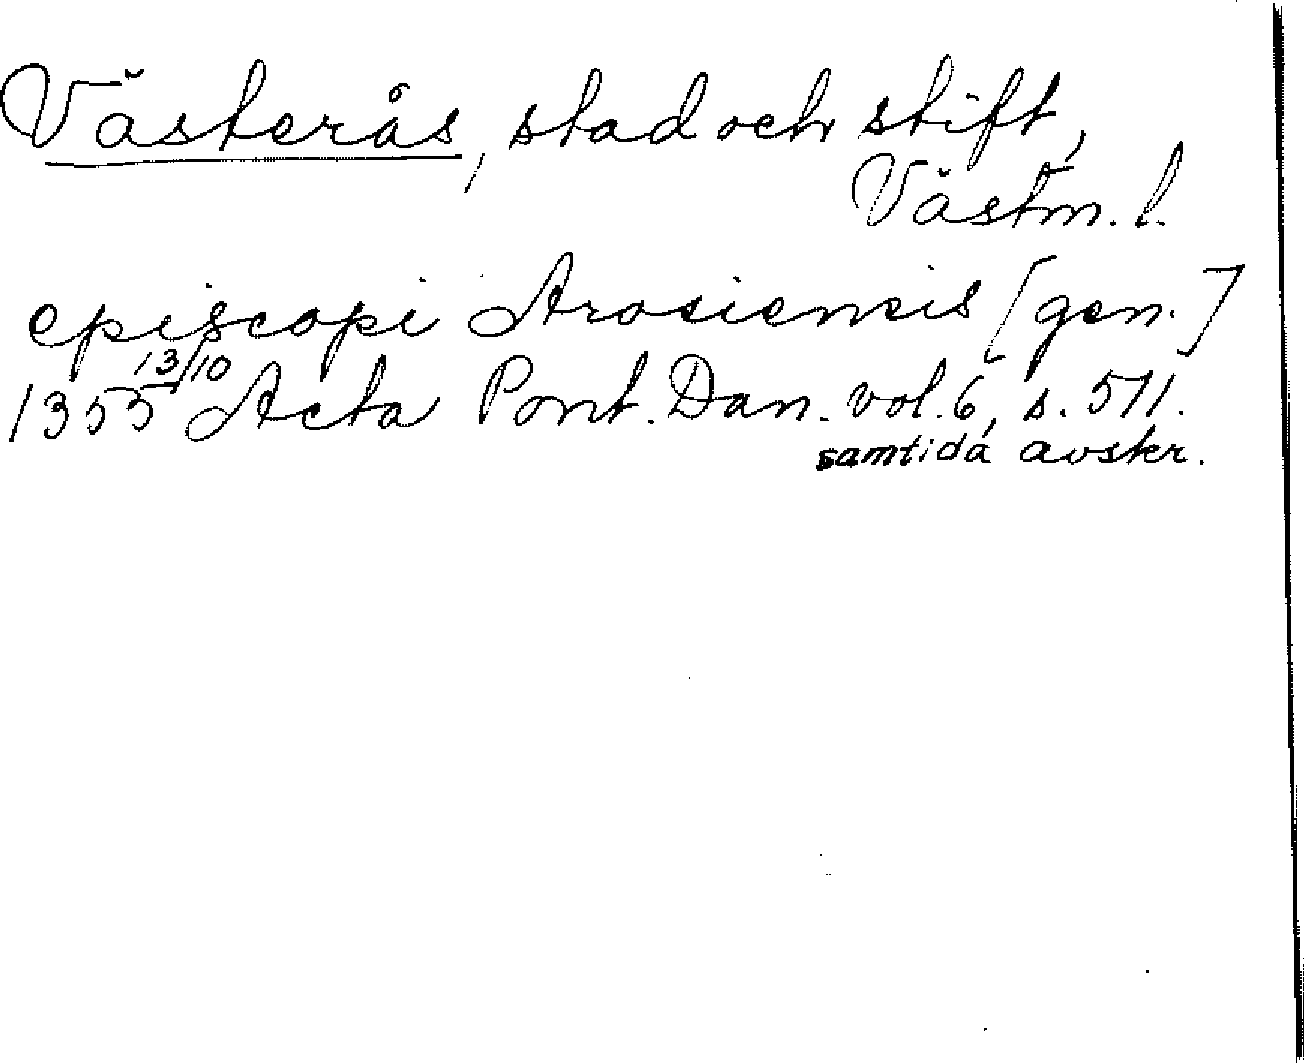 Västerås, stad och stift,
Västm. l.
episcopi Arosiensis [gen.]
1355 13/10 Acta Pont. Dan. vol. 6, s. 571.
samtida avskr.